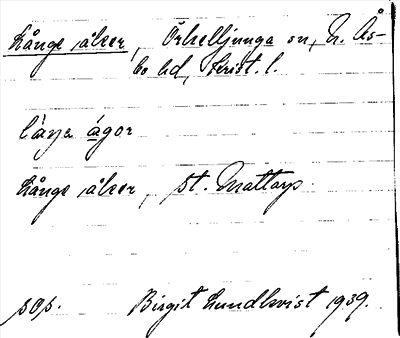 Långe åker, Örkelljunga sn, N. Ås-
bo hd, Krist. l.
lán̡a ágor
Långe åker, st. Mattarp.
sop. Birgit Lundkvist 1939.